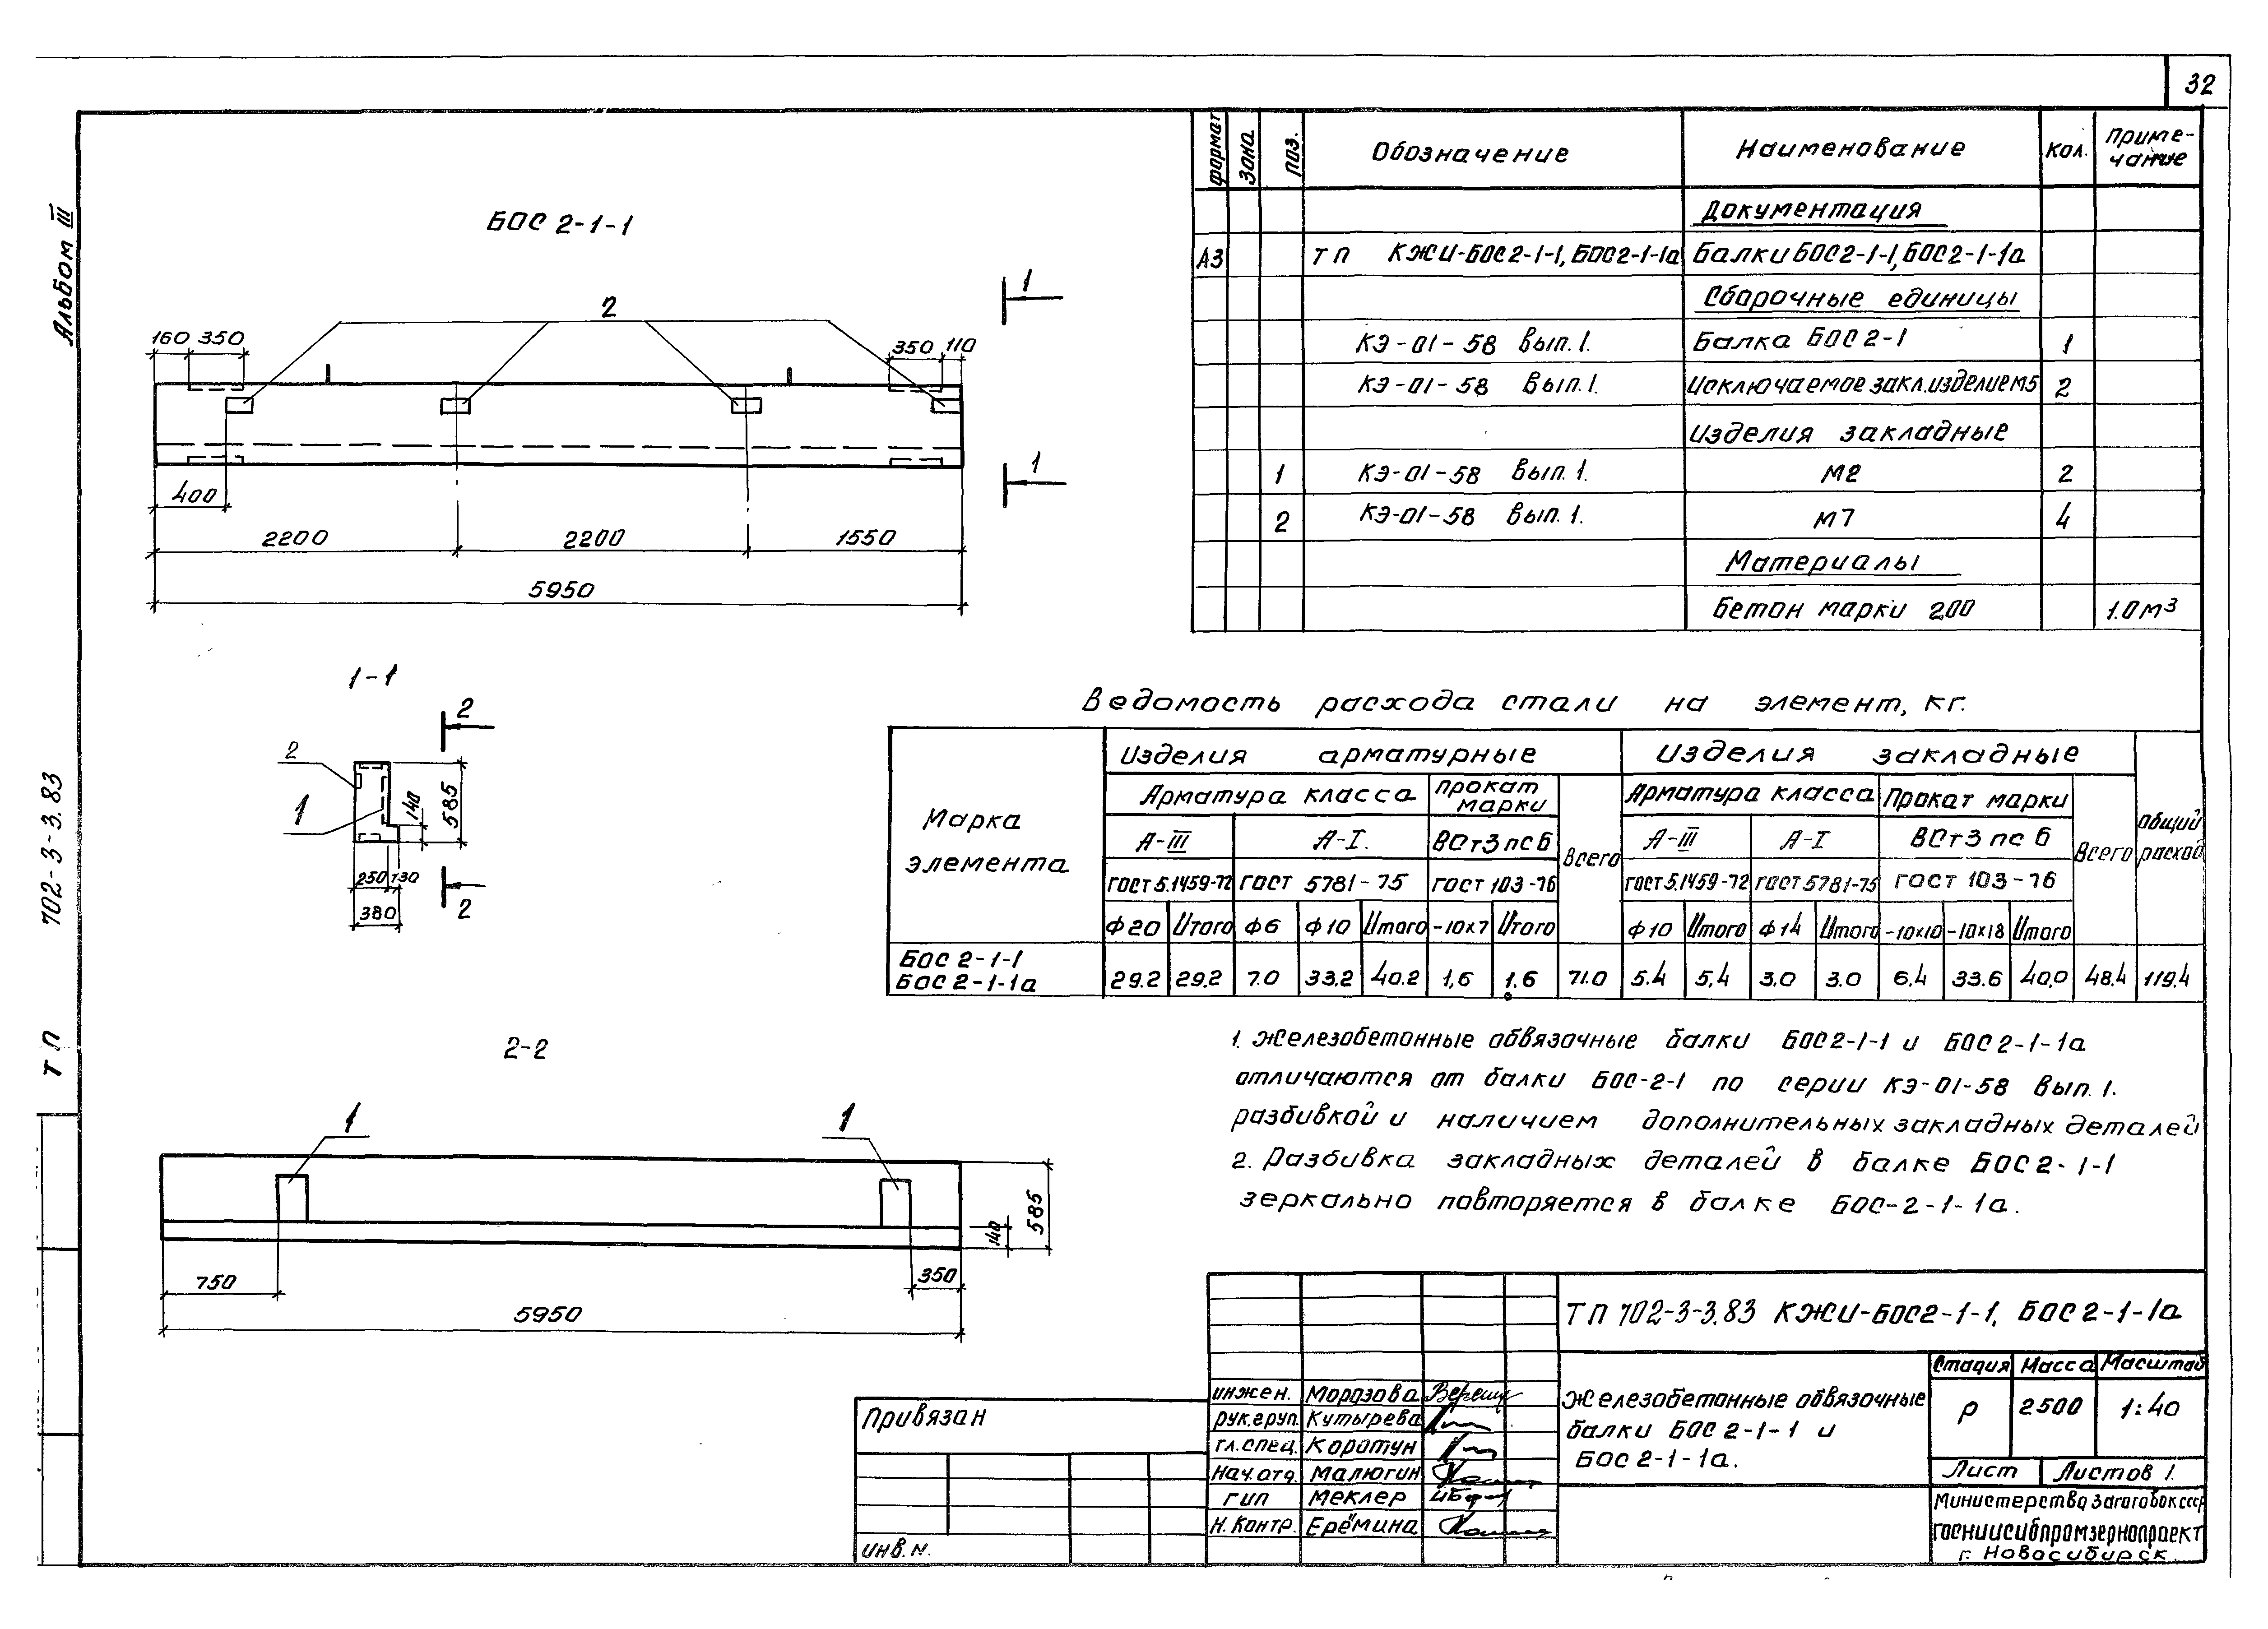 32
Альбом III
702-3-3.83
ТП
БОС 2-1-1
2
1
160 350
350 110
1
400
2200 2200 1550
5950
1-1
2
2
1
140
585
250 130
380
2
2-2
1 1
140
585
750 350
5950
формат зона поз. Обозначение Наименование кол. Приме-
чание
Документация
А3 ТП КЖИ-БОС2-1-1, БОС2-1-1а Балки БОС2-1-1, БОС2-1-1а
Сборочные единицы
КЭ-01-58 вып.1. Балка БОС2-1 1
КЭ-01-58 вып.1. Исключаемое закл.изделие М5 2
Изделия закладные
1 КЭ-01-58 вып.1. М2 2
2 КЭ-01-58 вып.1. М7 4
Материалы
Бетон марки 200 1.0м³
Ведомость расхода стали на элемент, кг.
Марка
элемента
Изделия арматурные Изделия закладные
Общий
расход
Арматура класса Прокат
марки
Всего
Арматура класса Прокат марки
Всего
А-III А-I. ВСт3пс6 А-III А-I ВСт3пс6
ГОСТ5.1459-72 ГОСТ 5781-75 ГОСТ 103-76 ГОСТ5.1459-72 ГОСТ5781-75 ГОСТ 103-76
Ф20 Итого Ф6 Ф10 Итого -10х7 Итого Ф10 Итого Ф14 Итого -10х10 -10х18 Итого
БОС 2-1-1
БОС 2-1-1а
29.2 29.2 7.0 33.2 40.2 1,6 1.6 71.0 5.4 5,4 3.0 3.0 6.4 33.6 40,0 48.4 119.4
1. Железобетонные обвязочные балки БОС2-1-1 и БОС2-1-1а
отличаются от балки БОС-2-1 по серии КЭ-01-58 вып.1.
разбивкой и наличием дополнительных закладных деталей
2. Разбивка закладных деталей в балке БОС2-1-1
зеркально повторяется в балке БОС-2-1-1а.
ТП 702-3-3.83 КЖИ-БОС2-1-1, БОС2-1-1а
Инжен. Морозова
рук.груп. Кутырева
гл.спец. Коротун
Нач.отд. Малюгин
ГИП Меклер
Н.Контр. Ерёмина
Железобетонные обвязочные
балки БОС 2-1-1 и
БОС 2-1-1а.
Стадия Масса Масштаб
Р 2500 1:40
Лист Листов 1.
Министерство заготовок СССР
ГОСНИИСИБПРОМЗЕРНОПРОЕКТ
г. Новосибирск.
Привязан
инв. N.